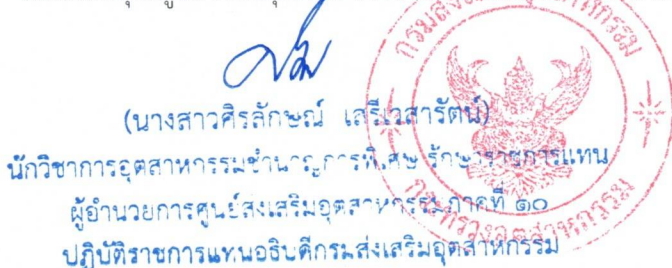 (นางสาวศิรลักษณ์ เสรีเวสารัตน์)
นักวิชาการอุตสาหกรรมชำนาญการพิเศษ รักษาราชการแทน
ผู้อำนวยการศูนย์ส่งเสริมอุตสาหกรรมภาคที่ ๑๐
ปฏิบัติราชการแทนอธิบดีกรมส่งเสริมอุตสาหกรรม
กระทรวงอุตสาหกรรม